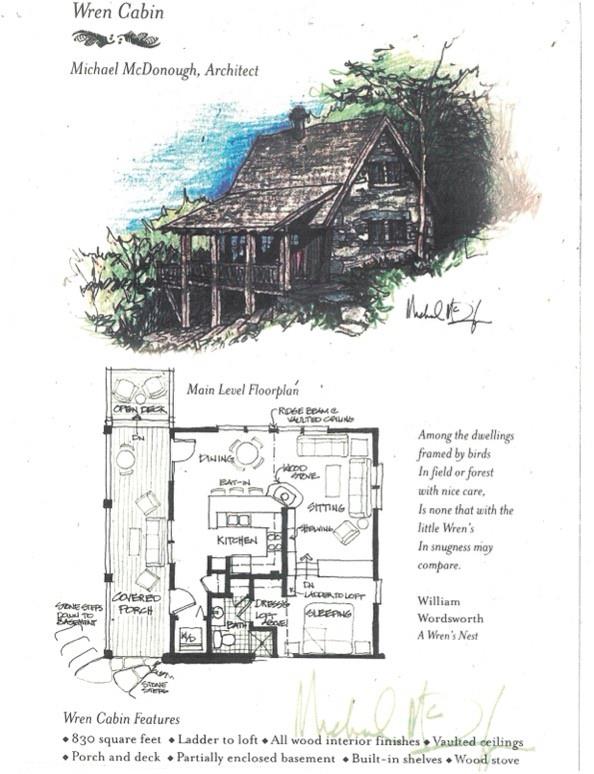 Wren Cabin
Michael McDonough, Architect
Michael McD
Main Level Floorplan
OPEN DECK
DN
RIDGE BEAM @
VAULTED CEILING
DINING
WOOD
STOVE
EAT-IN
SITTING
KITCHEN
SHELVING
DN
LADDER TO LOFT
COVERED
PORCH
DRESS'G
LOFT
ABOVE
SLEEPING
BATH
W/D
STONE STEPS
DOWN TO
BASEMENT
STONE
STEPS
Among the dwellings
framed by birds
In field or forest
with nice care,
Is none that with the
little Wren's
In snugness may
compare.
William
Wordsworth
A Wren's Nest
Wren Cabin Features
◆ 830 square feet ◆ Ladder to loft ◆ All wood interior finishes ◆ Vaulted ceilings
◆ Porch and deck ◆ Partially enclosed basement ◆ Built-in shelves ◆ Wood stove